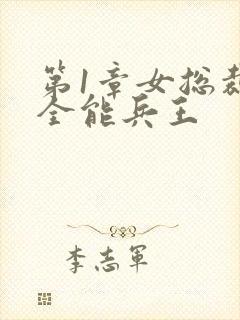 第1章女总裁
全能兵王
李志军